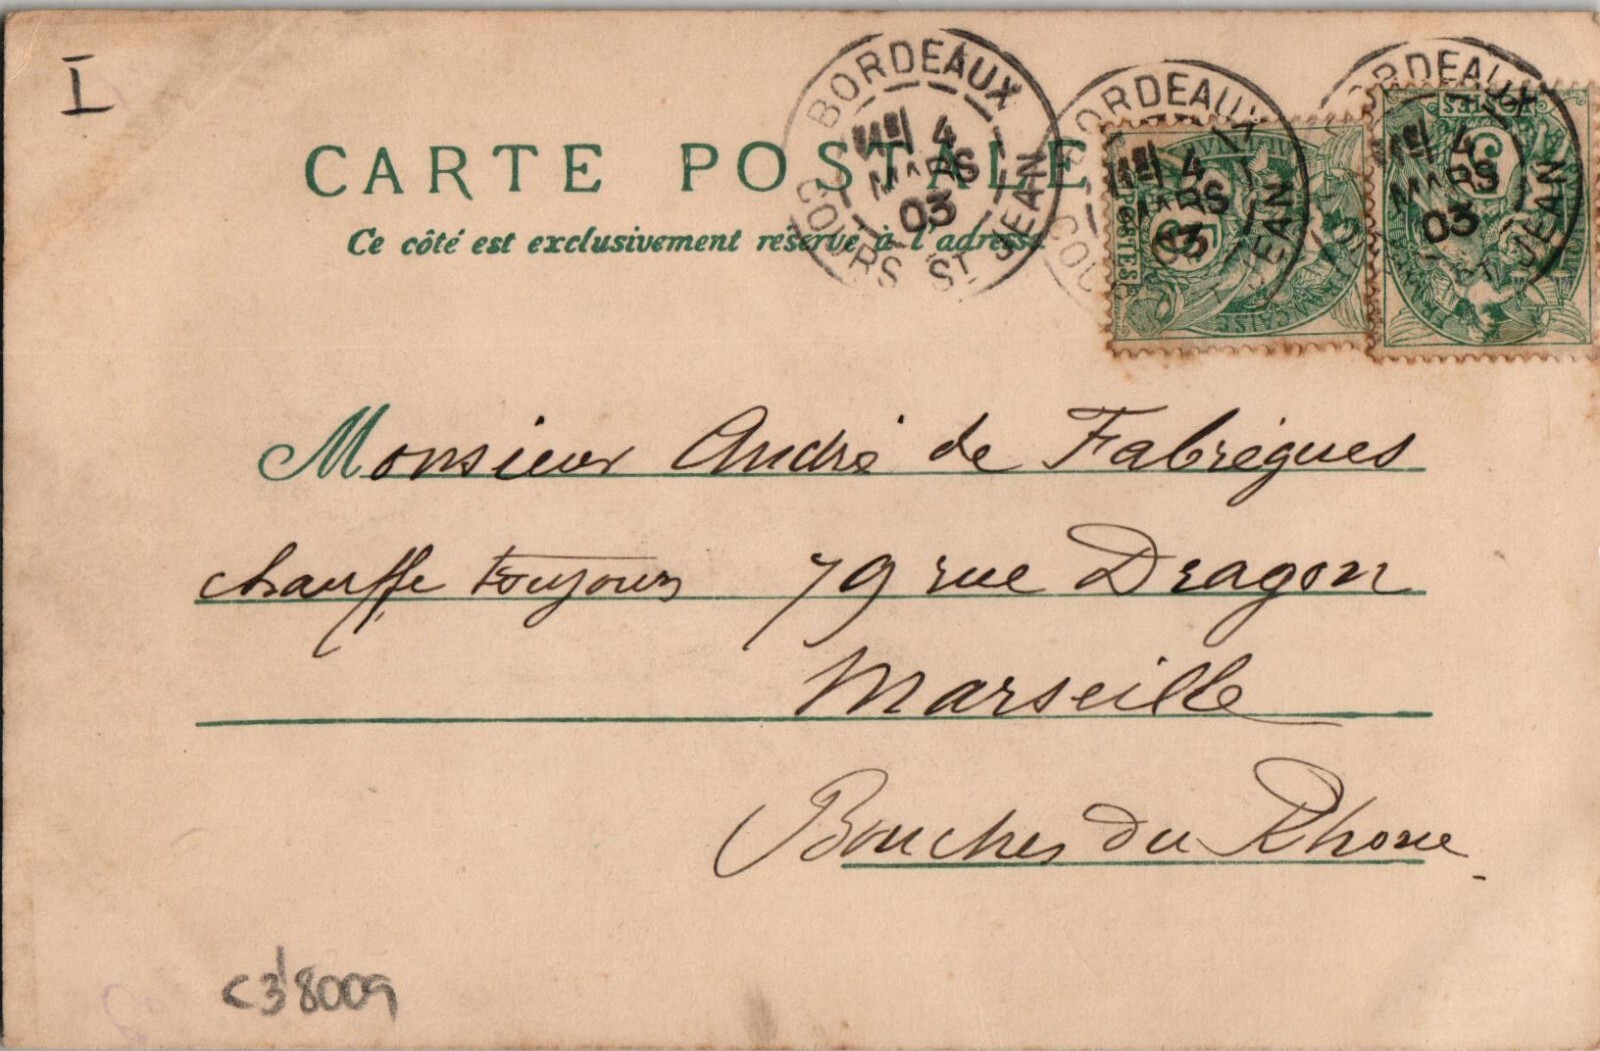 I
BORDEAUX
4
MARS
03
COURS ST JEAN
BORDEAUX
4
MARS
03
COU JEAN
BORDEAUX
4
MARS
03
ST JEAN
POSTES
5
POSTES
5
CARTE POSTALE
Ce côté est exclusivement réservé à l'adresse
Monsieur André de Fabrègues
chauffe toujours 79 rue Dragon
Marseille
Bouches du Rhone
C38009